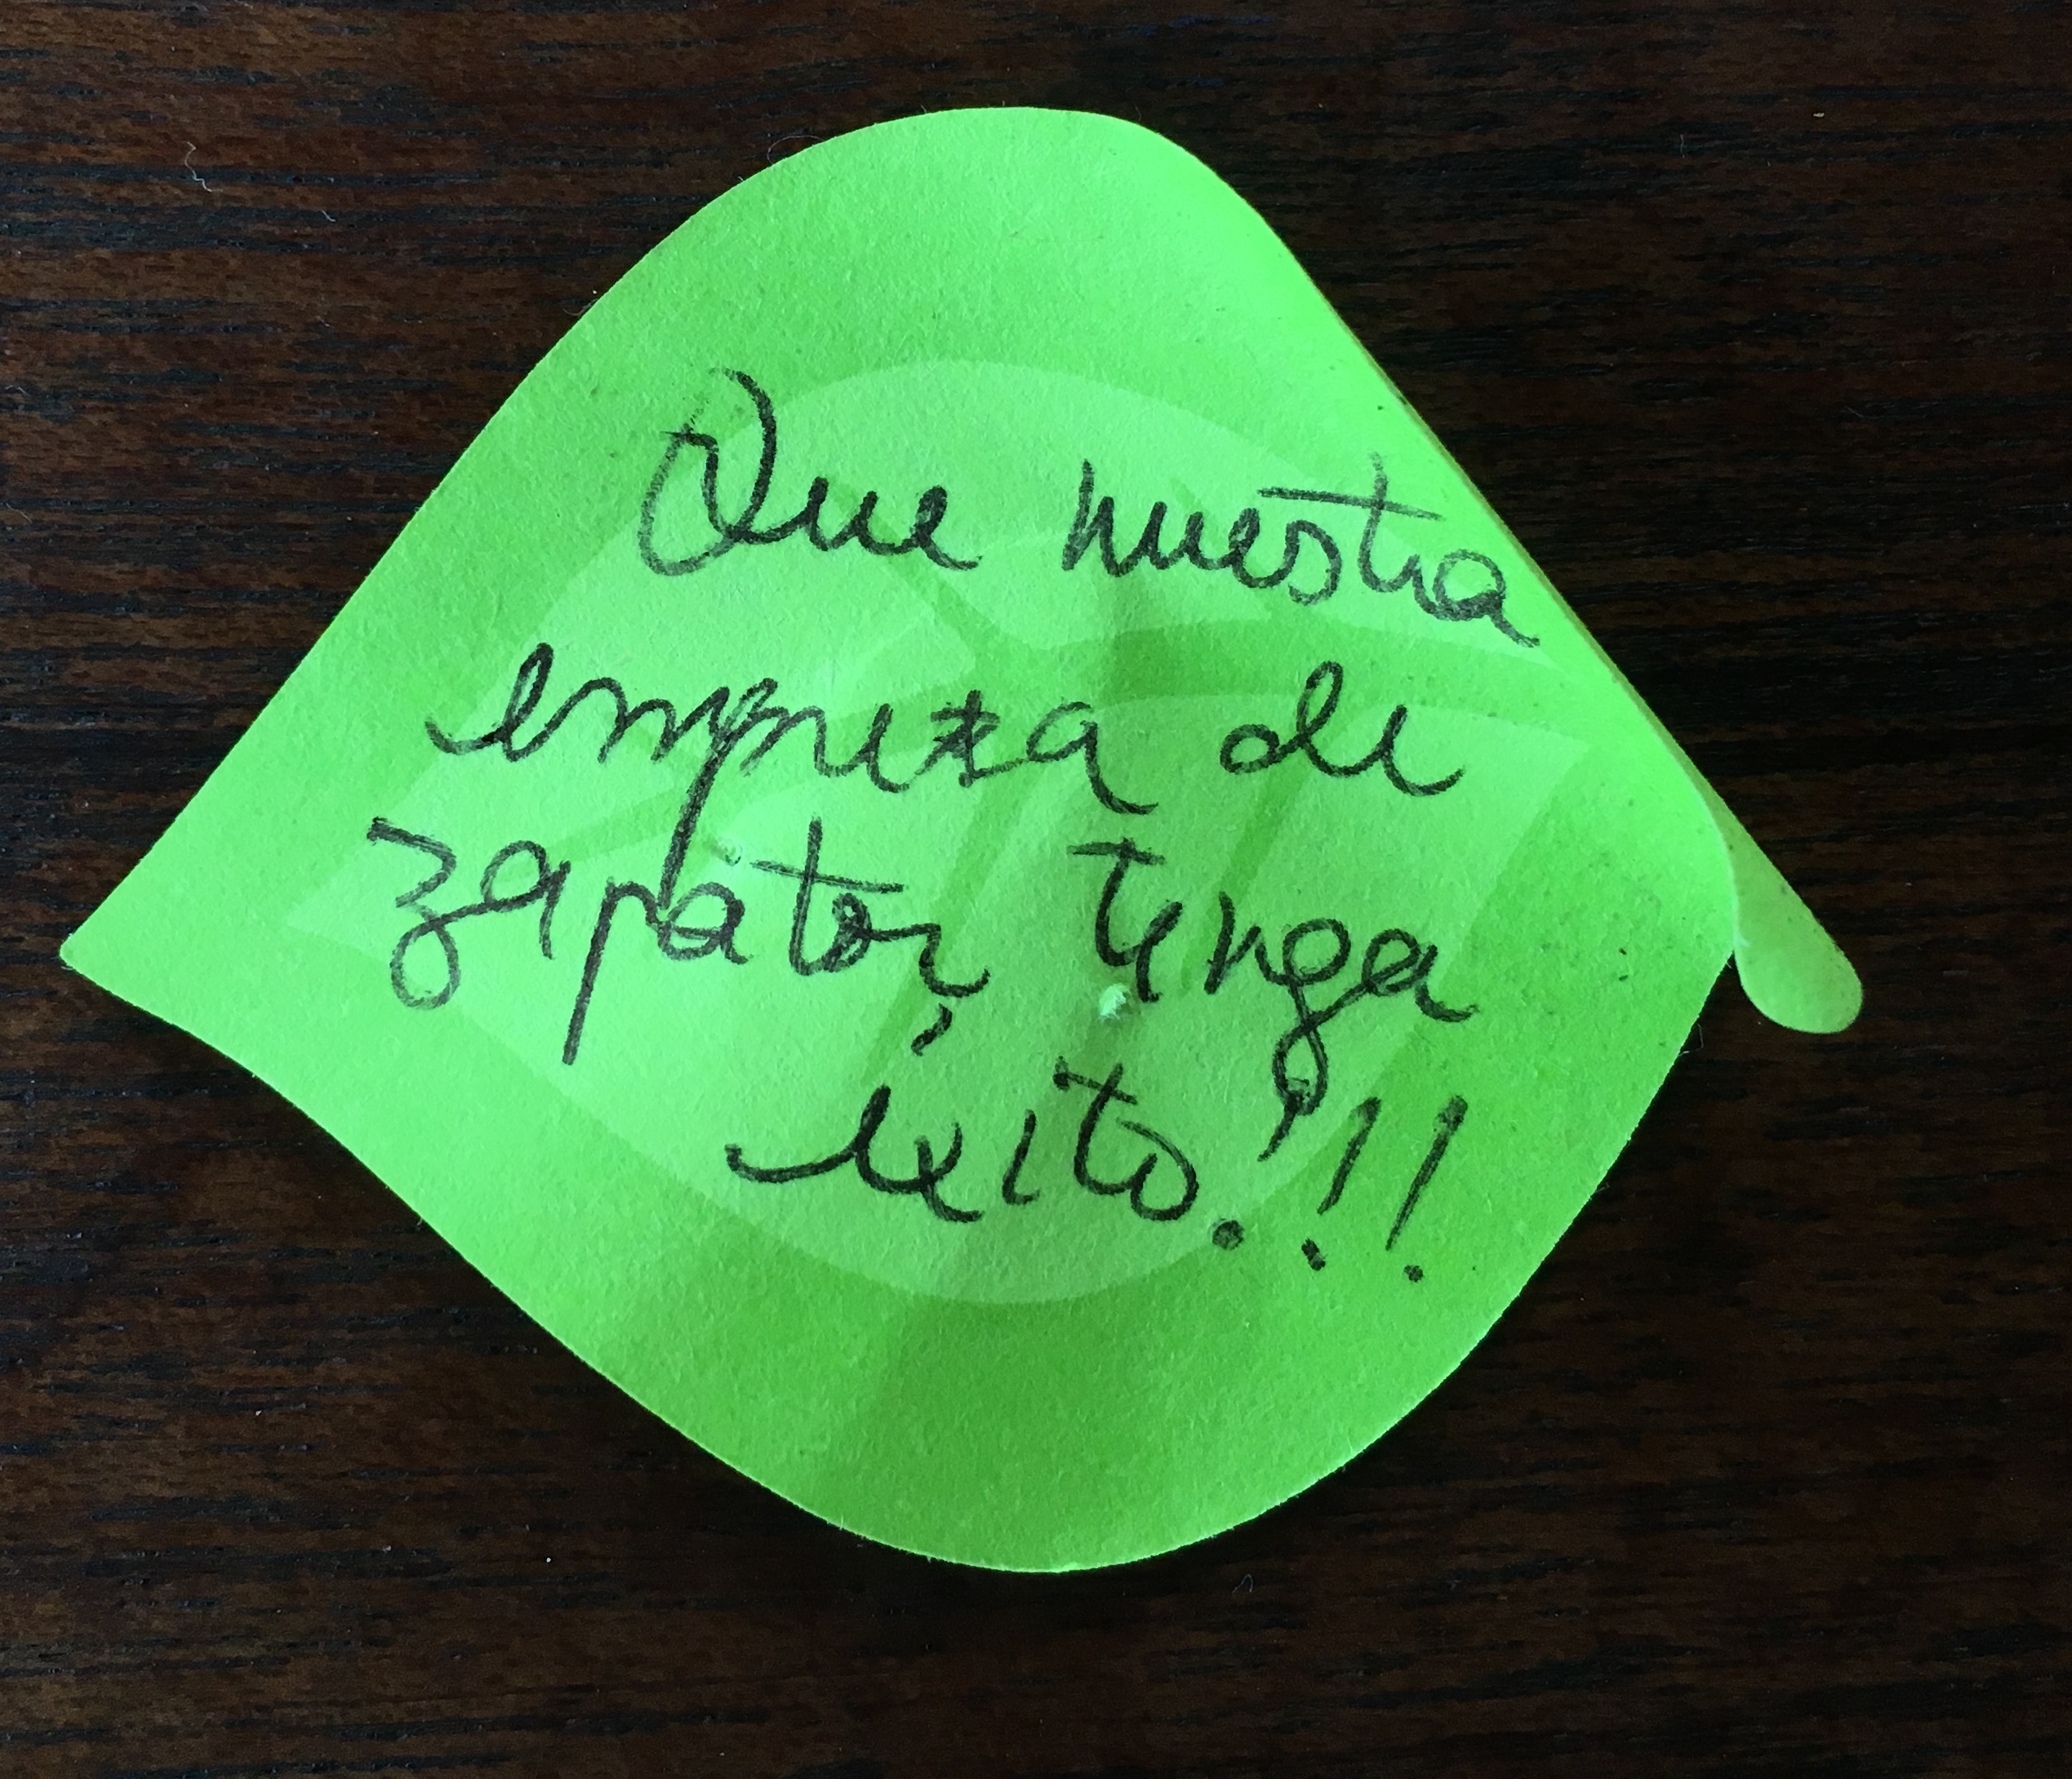 Que nuestra
empresa de
zapatos, tenga
exito!!!